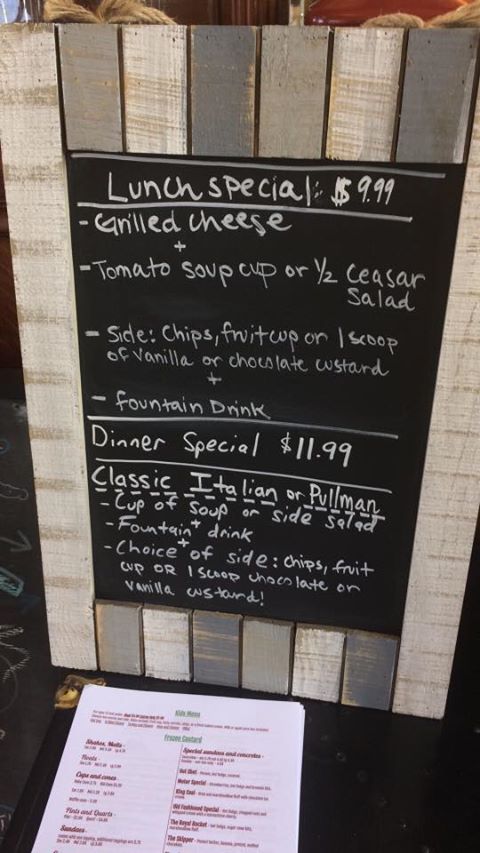 Lunch special: $9.99
- Grilled cheese
+
- Tomato soup cup or ½ Ceasar
Salad
- Side: Chips, fruit cup or 1 scoop
of Vanilla or chocolate custard
+
- fountain Drink
Dinner Special $11.99
Classic Italian or Pullman
- Cup of soup or side salad
+
- Fountain drink
+
- Choice of side: chips, fruit
cup OR 1 scoop chocolate or
vanilla custard!
Kids Menu
Frozen Custard
Shakes, Malts -
Floats -
Cups and cones -
Pints and Quarts -
Sundaes -
Special sundaes and concretes -
Hot Shot -
Motor Special -
King Sooi -
Old Fashioned Special -
The Royal Rocket -
The Skipper -